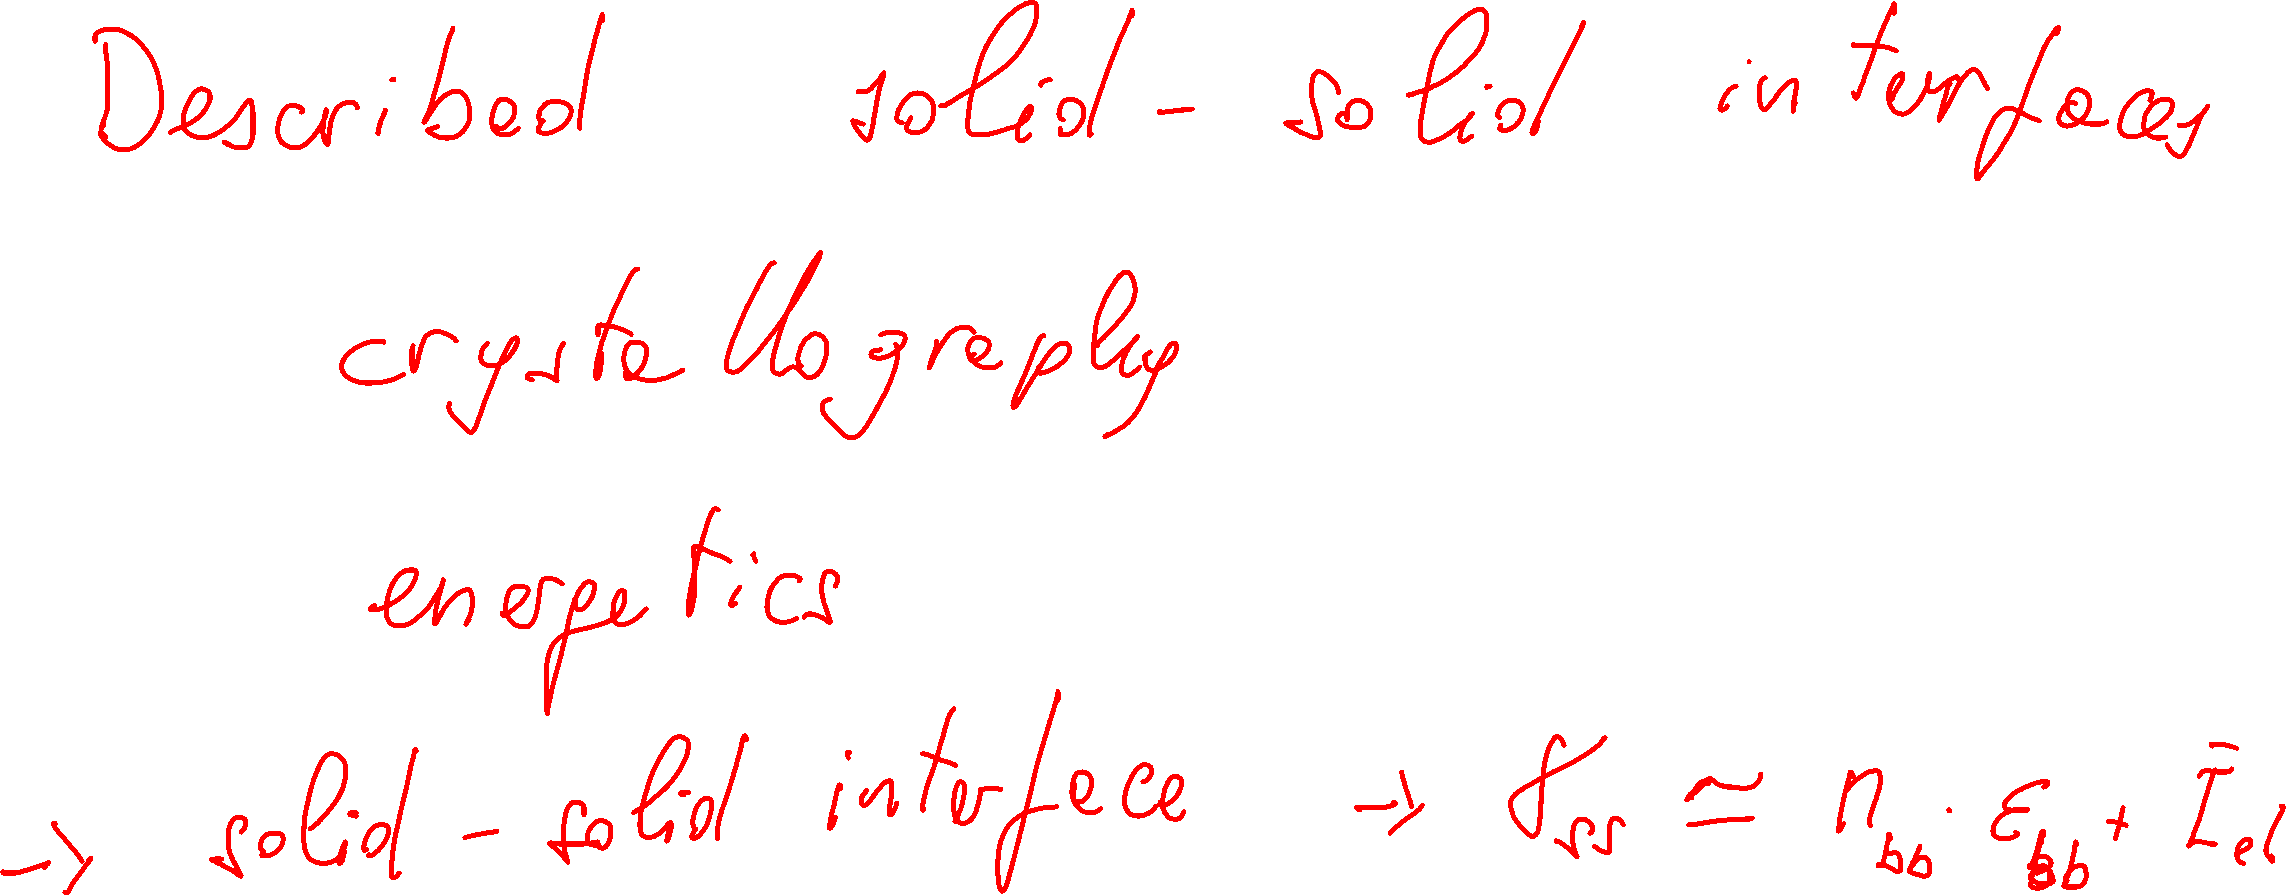 Described solid - solid interfaces
crystallography
energetics
→ solid - solid interface → γss ≃ nbb · εbb + Eel